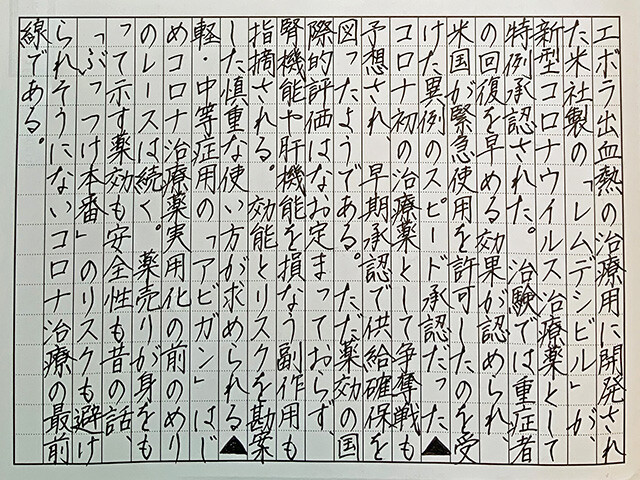 エボラ出血熱の治療用に開発され
た米社製の「レムデシビル」が、
新型コロナウイルス治療薬として
特例承認された。治験では重症者
の回復を早める効果が認められ、
米国が緊急使用を許可したのを受
けた異例のスピード承認だった▲
コロナ初の治療薬として争奪戦も
予想され、早期承認で供給確保を
図ったようである。ただ薬効の国
際的評価はなお定まっておらず、
腎機能や肝機能を損なう副作用も
指摘される。効能とリスクを勘案
した慎重な使い方が求められる▲
軽・中等症用の「アビガン」はじ
めコロナ治療薬実用化の前のめり
のレースは続く。薬売りが身をも
って示す薬効も安全性も昔の話、
「ぶっつけ本番」のリスクも避け
られそうにないコロナ治療の最前
線である。